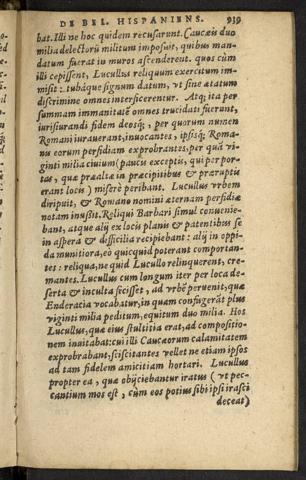 DE BEL. HISPANIENS. 939
bat. Illi ne hoc quidem recusarunt. Caucæis duo
milia delectorũ militum imposuit, quibus man-
datum fuerat in muros ascenderent. quos cùm
illi cepissent, Lucullus reliquum exercitum im-
misit: tubáque signum datum, vt sine ætatum
discrimine omnes interficerentur. Atq; ita per
summam immanitatẽ omnes trucidati fuerunt,
iurisiurandi fidem deosq; , per quorum numen
Romani iurauerant, inuocantes, ipsisq; Roma-
nu eorum perfidiam exprobrantes, per quã vi-
ginti milia ciuium (paucis exceptis, qui per por-
tas, quæ præaltæ in præcipitibus & præruptis
erant locis) miserè peribant. Lucullus vrbem
diripuit, & Romano nomini æternam perfidiæ
notam inussit. Reliqui Barbari simul conuenie-
bant, atque alij ex locis planis & patentibus se
in aspera & difficilia recipiebant: alij in oppi-
da munitiora, eò quicquid poterant comportan-
tes: reliqua, ne quid Lucullo relinquerent, cre-
mantes. Lucullus cum longum iter per loca de-
serta & inculta fecisset, ad vrbẽ peruenit, quæ
Endercia vocabatur, in quam confugerãt plus
viginti milia peditum, equitum duo milia. Hos
Lucullus, quæ eius stultitia erat, ad compositio-
nem inuitabat: cui illi Caucæorum calamitatem
exprobrabant, sciscitantes vellet ne etiam ipsos
ad tam fidelem amicitiam hortari. Lucullus
propter ea, quæ obijciebantur iratus (vt pec-
cantium mos est, cùm eos potius sibi ipsi irasci
deceat)